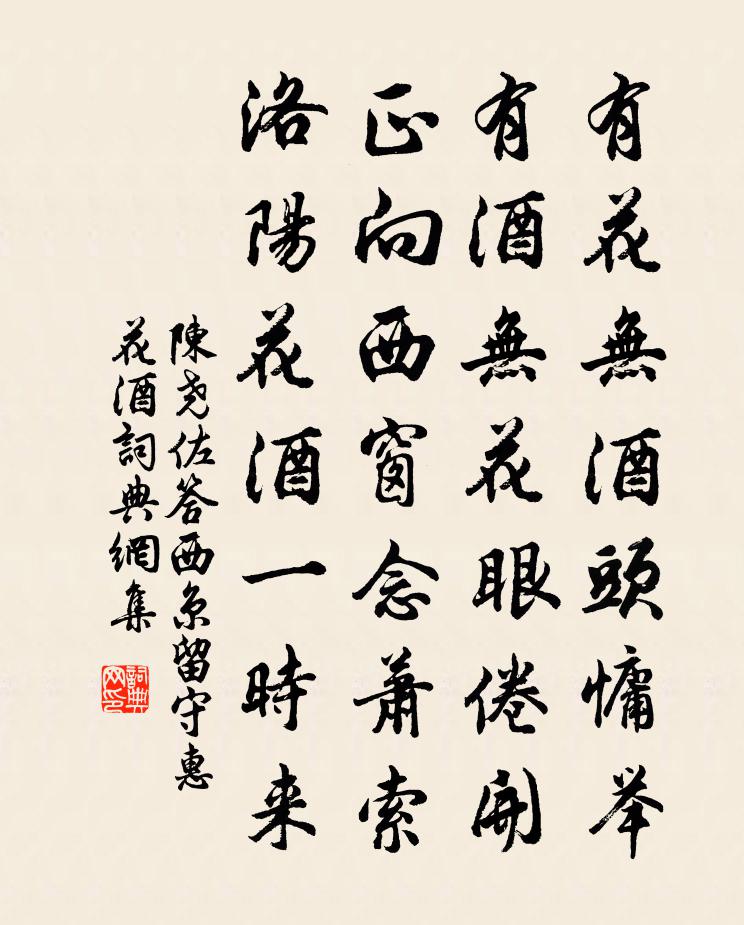 有花無酒頭慵举
有酒無花眼倦開
正向西窗念蕭索
洛陽花酒一時来
陳尧佐答西京留守惠
花酒詞典網集
詞典
网印